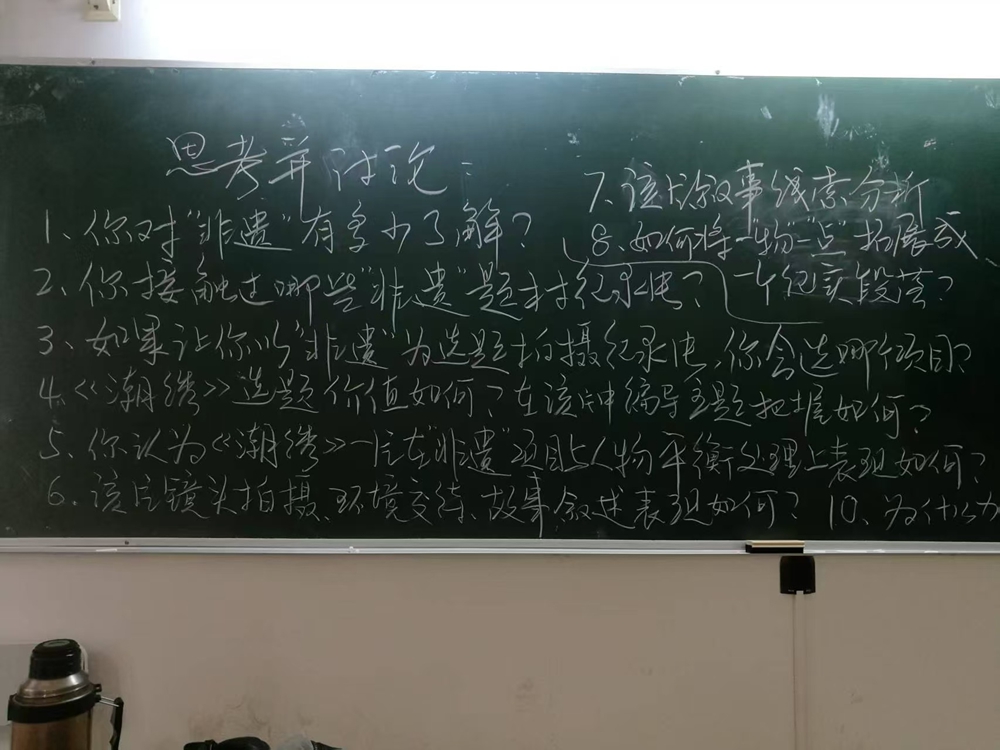 思考并讨论：
1、你对"非遗"有多少了解？
2、你接触过哪些"非遗"题材纪录片？
3、如果让你以"非遗"为选题拍摄纪录片，你会选哪个项目？
4、《潮绣》选题价值如何？在该片中编导主题把握如何？
5、你认为《潮绣》一片在"非遗"项目与人物平衡处理上表现如何？
6、该片镜头拍摄、环境交待、故事叙述表现如何？
7、该片叙事线索分析
8、如何将一"物"一"点"拓展成
一个纪实段落？
10、为什么